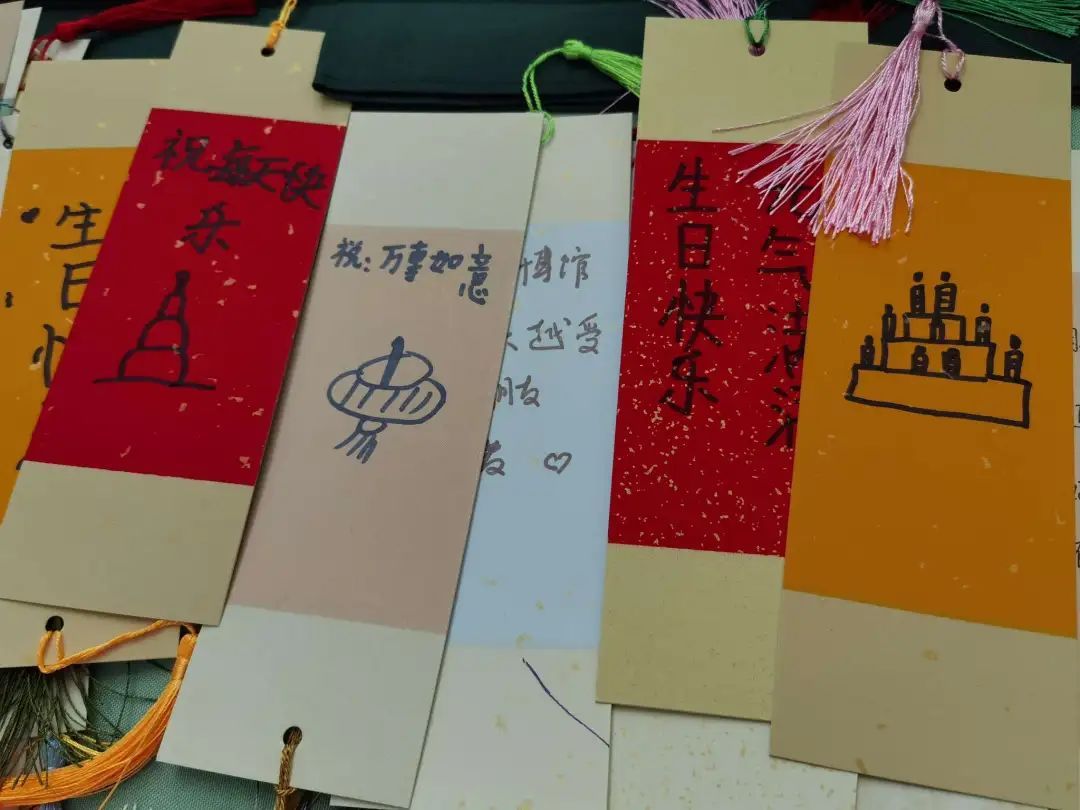 生日
祝每天快
乐
祝：万事如意
博馆
越受
朋友
生日快乐
气满满